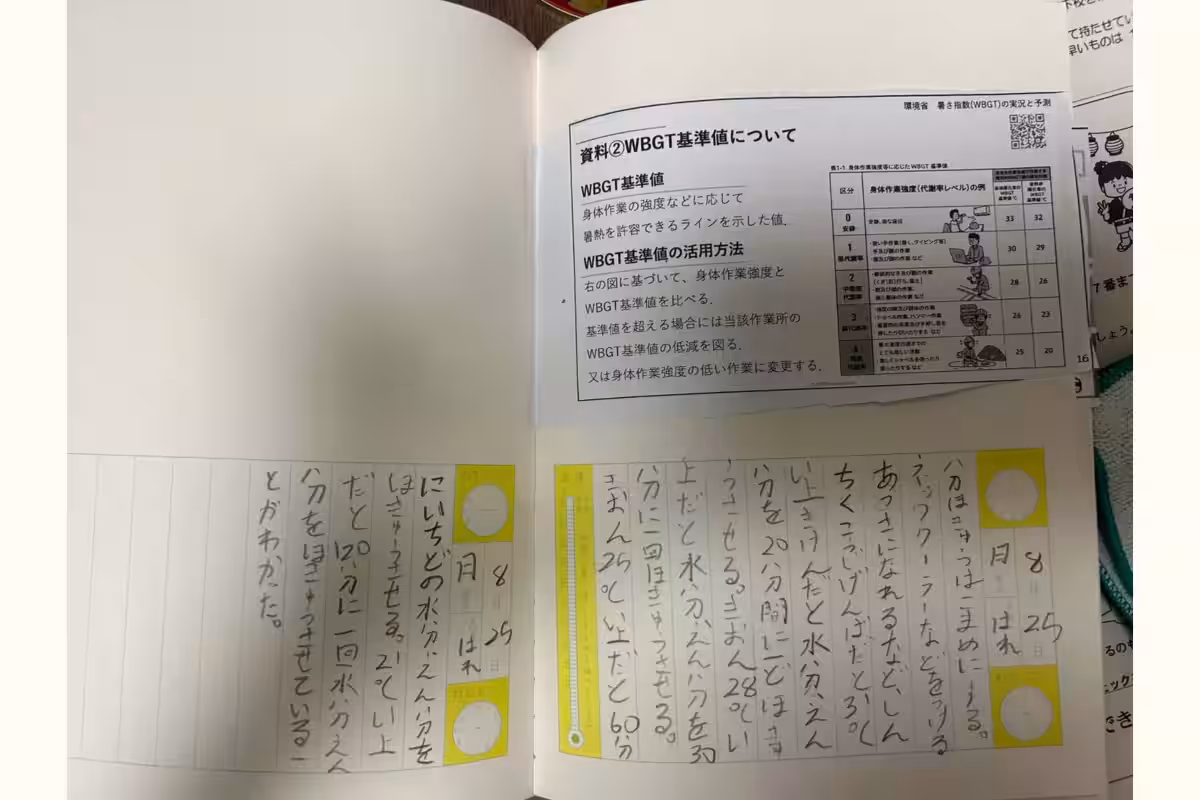 環境省 暑さ指数(WBGT)の実況と予測
資料②WBGT基準値について
WBGT基準値
身体作業の強度などに応じて
暑熱を許容できるラインを示した値.
WBGT基準値の活用方法
右の図に基づいて、身体作業強度と
WBGT基準値を比べる.
基準値を超える場合には当該作業所の
WBGT基準値の低減を図る.
又は身体作業強度の低い作業に変更する.
表1-1 身体作業強度等に応じたWBGT基準値
区分 身体作業強度(代謝率レベル)の例
0 安静 33 32
1 低代謝率 30 29
2 28 26
3 26 23
4 25 20
8月25日
月 はれ
分ほきゅうはこまめにする。
ネッククーラーなどをつける
あつさになれるなど、しん
ちくこうじげんばだと、31℃
い上きけんだと水分、えん
分を20分間に一どほきゅ
うさせる。きおん28℃い
上だと水分、えん分を30
分に一回ほきゅうさせる。
きおん25℃い上だと60分
8月25日
月 はれ
にいちどの水分、えん分を
ほきゅうさせる。21℃い上
だと120分に一回水分えん
分をほきゅうさせているこ
とがわかった。
て持たせてい
早いものは
7番ま
しょう
16